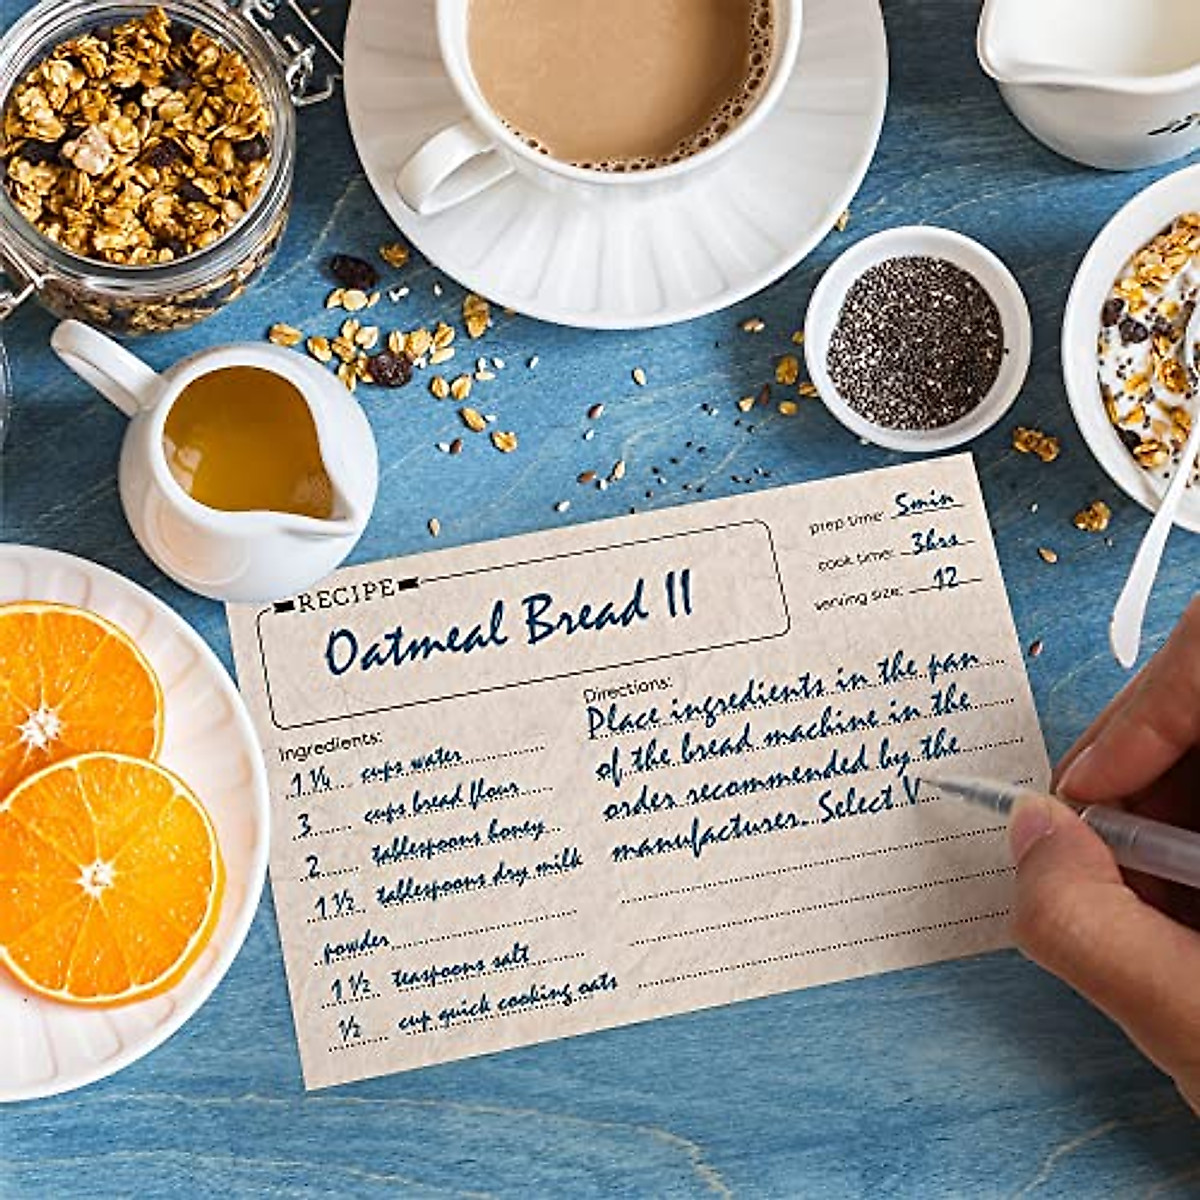 RECIPE
Oatmeal Bread II
prep time: 5min
cook time: 3hrs
serving size: 12
Ingredients:
1 ¼ cups water
3 cups bread flour
2 tablespoons honey
1 ½ tablespoons dry milk
powder
1 ½ teaspoons salt
½ cup quick cooking oats
Directions:
Place ingredients in the pan
of the bread machine in the
order recommended by the
manufacturer. Select V